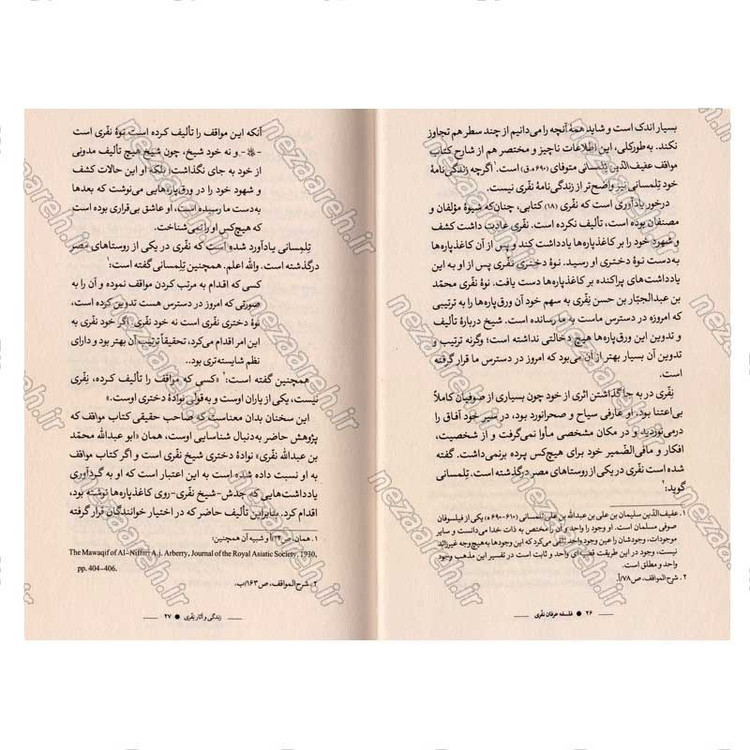 بسیار اندک است و شاید همهٔ آنچه را می‌دانیم از چند سطر هم تجاوز
نکند. به‌طورکلی، این اطلاعات ناچیز و مختصر هم از شارح کتاب
مواقف عفیف‌الدین تِلمسانی متوفای (۶۹۰ه‍.ق) است.۱ اگرچه زندگی‌نامهٔ
خود تِلمسانی نیز واضح‌تر از زندگی‌نامهٔ نفّری نیست.
درخور یادآوری است که نفّری (۱۸) کتابی، چنان‌که شیوهٔ مؤلفان و
مصنفان بوده است، تألیف نکرده است. نفّری عادت داشت کشف
و شهود خود را بر کاغذپاره‌ها یادداشت کند و پس از آن کاغذپاره‌ها
به‌دست نوهٔ دختری او رسید. نوهٔ دختری نفّری پس از او به این
یادداشت‌های پراکنده بر کاغذپاره‌ها دست یافت. نوهٔ نفّری محمّد
بن عبدالجبّار بن حسن نِفّری به سهم خود آن ورق‌پاره‌ها را به ترتیبی
که امروزه در دسترس ماست به ما رسانده است. شیخ دربارهٔ تألیف
و تدوین این ورق‌پاره‌ها هیچ دخالتی نداشته است؛ وگرنه ترتیب و
تدوین آن بسیار بهتر از آن می‌بود که امروز در دسترس ما قرار گرفته
است.
نِفّری در به جا گذاشتن اثری از خود چون بسیاری از صوفیان کاملاً
بی‌اعتنا بود، او عارفی سیاح و صحرانورد بود، در سیر خود آفاق را
درمی‌نوردید و در مکان مشخصی مأوا نمی‌گرفت و از شخصیت،
افکار و مافی‌الضّمیر خود برای هیچ‌کس پرده برنمی‌داشت. گفته
شده است نفّری در یکی از روستاهای مصر درگذشته است. تِلمسانی
گوید:۲
۱. عفیف‌الدین سلیمان بن علی بن عبدالله بن علی تِلمسانی (۶۱۰-۶۹۰ه‍) یکی از فیلسوفان
صوفی مسلمان است. او وجود را واحد و آن را مختص به ذات خدا می‌دانست و سایر
موجودات، وجودشان را عین وجود واحد تلقی می‌کرد که این وجودها به‌هیچ‌وجه غیر از
نیست، وجود در این طریقت قضیه‌ای واحد و ثابت است در تفسیر این مذهب وجود
واحد و مطلق است.
۲. شرح‌المواقف، ص۱۷۸/أ.
۲۶ ● فلسفه عرفان نفّری
آنکه این مواقف را تألیف کرده است نوهٔ نفّری است
و نه خود شیخ، چون شیخ هیچ تألیف مدونی
از خود به جای نگذاشت، بلکه او این حالات کشف
و شهود خود را در ورق‌پاره‌هایی می‌نوشت که بعدها
به‌دست ما رسیده است، او عاشق بی‌قراری بوده است
که هیچ‌کس او را نمی‌شناخت.
تِلمسانی یادآورد شده است که نفّری در یکی از روستاهای مصر
درگذشته است. والله اعلم. همچنین تِلمسانی گفته است:۱
کسی که اقدام به مرتب کردن مواقف نموده و آن را به
صورتی که امروز در دسترس هست تدوین کرده است،
نوهٔ دختری نفّری است نه خود نفّری. اگر خود نفّری به
این امر اقدام می‌کرد، تحقیقاً ترتیب آن بهتر بود و دارای
نظم شایسته‌تری بود..
همچنین گفته است:۲ «کسی که مواقف را تألیف کرده، نفّری
نیست، یکی از یاران او و به‌قولی نوادهٔ دختری اوست.»
این سخنان بدان معناست که صاحب حقیقی کتاب مواقف که
پژوهش حاضر به‌دنبال شناسایی اوست، همان «ابو عبدالله محمّد
بن عبدالله نفّری» نوادهٔ دختری شیخ نفّری است و اگر کتاب مواقف
به او نسبت داده شده است به این اعتبار است که او به گردآوری
یادداشت‌هایی که جدّش-شیخ نفّری-روی کاغذپاره‌ها نوشته بود،
اقدام کرد. بنابراین تألیف حاضر که در اختیار خوانندگان قرار گرفته
۱. همان، ص۲۴/أ و شبیه آن همچنین:
The Mawaqif of Al-Niffiri A.j. Arberry, Journal of the Royal Asiatic Society, 1930,
pp. 404-406.
۲. شرح‌المواقف، ص۱۶۳/ب.
زندگی و آثار نِفّری ● ۲۷
nezaareh.ir